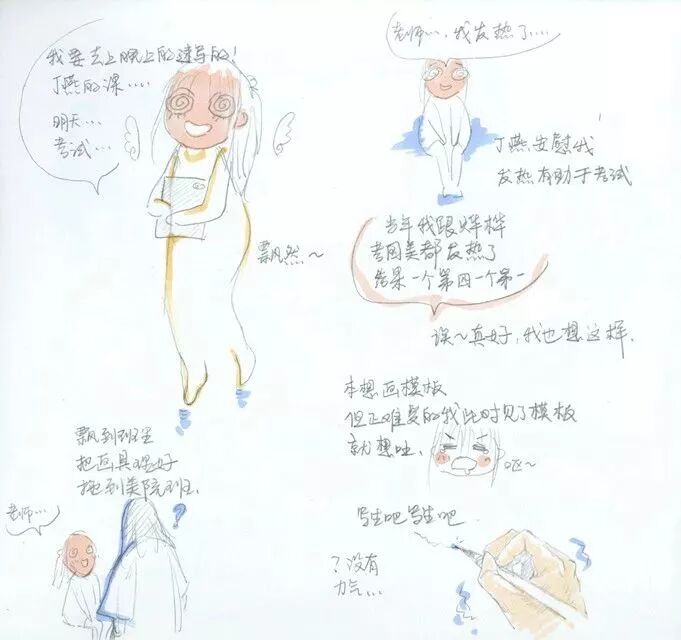 我要去上晚上的速写的！
丁燕的课....
明天....
考试....
飘然~
飘到班里
把画具理好
搬到美院班.
老师...
?
老师...，我发热了....
丁燕安慰我
发热有助于考试
当年我跟烨桦
考国美都发热了
结果一个第四一个第一
诶~真好，我也想这样.
本想画模板
但正难受的我此时见了模板
就想吐.
呕~
写生吧写生吧
?没有
力气...